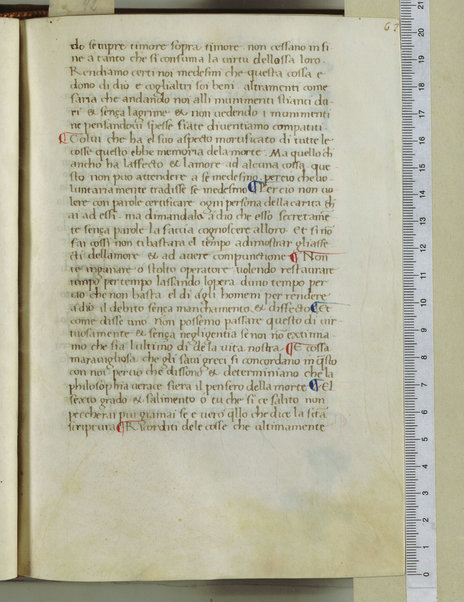 67
do sempre timore sopra timore non cessano insi
ne a tanto che si consuma la virtu dellossa loro
Rendiamo certi noi medesimi che questa cossa e
dono di dio e cogli altri soi beni altramenti come
saria che andando noi alli munimenti siamo du
ri & senza lagrime & non vedendo i munimenti
ne pensandovi spesse fiate diventiamo compatiti
Colui che ha el suo aspecto mortificato di tutte le
cosse questo ebbe memoria dela morte . Ma quello ch
ancho ha lassecto & lamore ad alcuna cossa que
sto non puo attendere a se medesimo percio che vo
luntariamente tradisse se medesmo Percio non vo
lere con parole certificare ogni persona della carita ch
ai ad essi ma dimandalo a dio che esso secretame
te senza parole la faccia cognoscere alloro Et si no
fai cossi non ti bastara el tempo a dimostrar gli affe
cti dellamore & ad avere compunctione Non
te inganare o stolto operatore volendo restaurare
tempo per tempo lassando lopera duno tempo per
cio che non basta el di agli homeni per rendere
a dio il debito senza manchamento & diffecto Et
come disse uno non possemo passare questo di vir
tuosamente & senza negligentia se noi no extima
mo che sia lultimo di de la vita nostra E cossa
maravigliosa che gli savi greci si concordano in questo
con noi percio che dissono & determiniano che la
philosophia verace si era il pensero della morte El
sexto grado & salimento o tu che si ce salito non
peccherai piu giamai se e vero quello che dice la scta
scriptura Ricorditi dele cosse che ultimamente